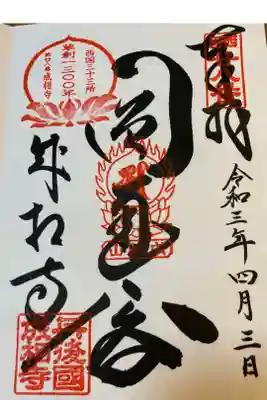 奉拝
令和三年四月三日
西国三十三所
草創一三〇〇年
第廿八番 成相寺
成相寺
丹後國
成相寺